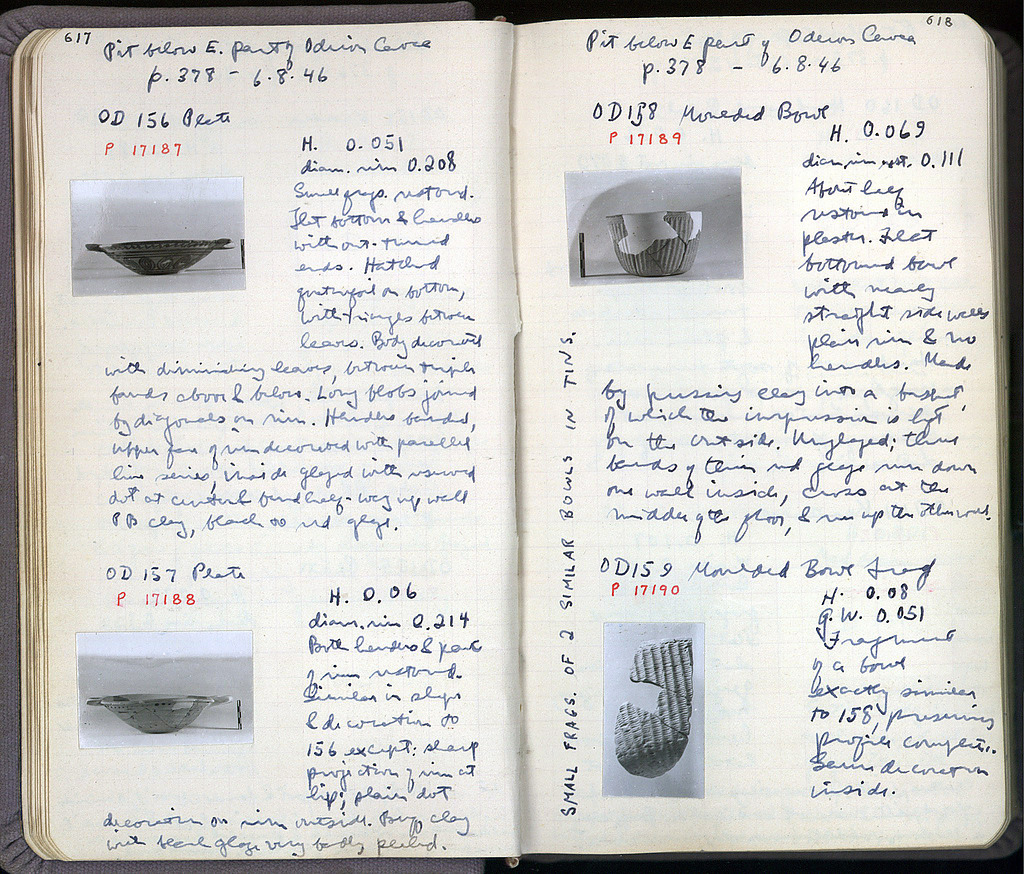 617
Pit below E. part of Odeion Cavea
p. 378 - 6.8.46
OD 156 Plate
P 17187
H. 0.051
diam. rim 0.208
Small frags. restored.
Flat bottom & handles
with out-turned
ends. Hatched
quatrefoil on bottom,
with fringes between
leaves. Body decorated
with diminishing leaves, between triple
bands above & below. Long blobs joined
by diagonals on rim. Handles banded,
upper face of rim decorated with parallel
line series, inside glazed with reserved
dot at center & band half-way up wall
PB clay, black to red glaze.
OD 157 Plate
P 17188
H. 0.06
diam. rim 0.214
Both handles & part
of rim restored.
Similar in shape
& decoration to
156 except: sharp
projection of rim at
lip; plain dot
decoration on rim outside. Buff clay
with black glaze very badly peeled.
618
Pit below E part of Odeion Cavea
p. 378 - 6.8.46
OD158 Moulded Bowl
P 17189
H. 0.069
diam. rim est. 0.111
About half
restored in
plaster. Flat
bottomed bowl
with nearly
straight side walls
plain rim & no
handles. Made
by pressing clay into a basket,
of which the impression is left
on the outside. Unglazed; three
bands of thin red glaze run down
one wall inside, cross at the
middle of the floor, & run up the other wall.
OD159 Moulded Bowl frag
P 17190
H. 0.08
G.W. 0.051
Fragment
of a bowl
exactly similar
to 158, preserving
profile complete.
Same decoration
inside.
SMALL FRAGS. OF 2 SIMILAR BOWLS IN TINS.